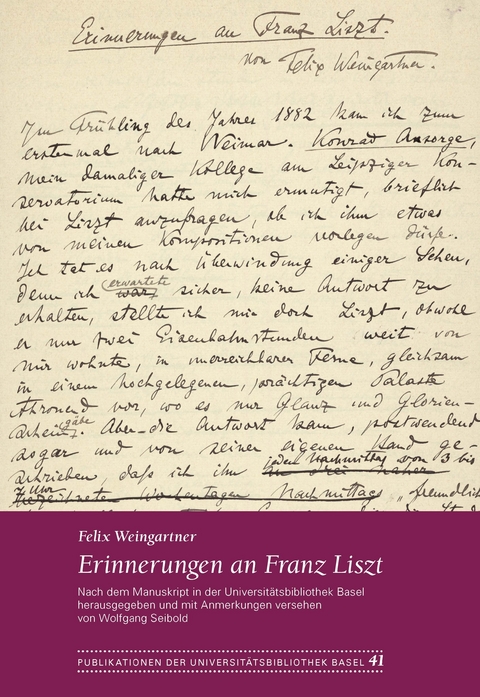 Erinnerungen an Franz Liszt.
von Felix Weingartner.
Im Frühling des Jahres 1882 kam ich zum
erstenmal nach Weimar. Konrad Ansorge,
mein damaliger Kollege am Leipziger Kon-
servatorium hatte mich ermutigt, brieflich
bei Liszt anzufragen, ob ich ihm etwas
von meinen Kompositionen vorlegen dürfe.
Ich tat es nach Überwindung einiger Scheu,
denn ich erwartete war sicher, keine Antwort zu
erhalten, stellte ich mir doch Liszt, obwohl
er nur zwei Eisenbahnstunden weit von
mir wohnte, in unerreichbarer Ferne, gleichsam
in einem hochgelegenen, prächtigen Palaste
thronend vor, wo es nur Glanz und Glorien-
schein gäbe. Aber die Antwort kam, postwendend
sogar und von seiner eigenen Hand ge-
schrieben, daß ich ihm jeden Nachmittag von 3 bis
Wochentagen Nachmittags „freundlich
Felix Weingartner
Erinnerungen an Franz Liszt
Nach dem Manuskript in der Universitätsbibliothek Basel
herausgegeben und mit Anmerkungen versehen
von Wolfgang Seibold
PUBLIKATIONEN DER UNIVERSITÄTSBIBLIOTHEK BASEL 41